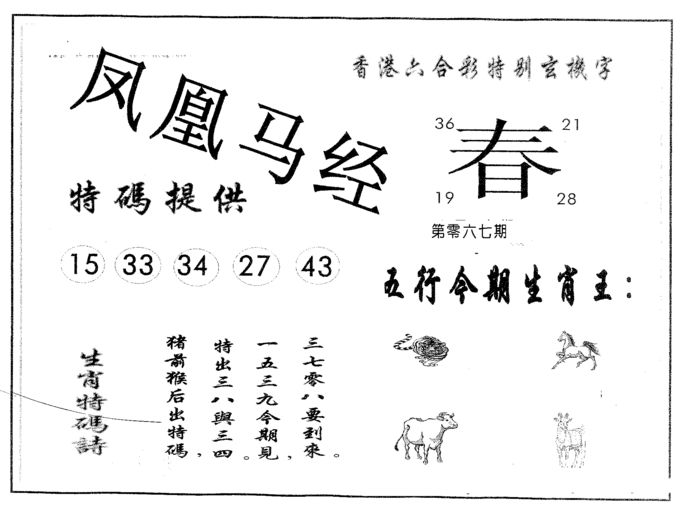 凤凰马经
香港六合彩特别玄機字
36
21
春
19
28
第零六七期
特碼提供
15 33 34 27 43
五行今期生肖王：
生肖特碼詩
猪前猴后出特碼，
特出三八與三四。
一五三九今期見，
三七零八要到來。